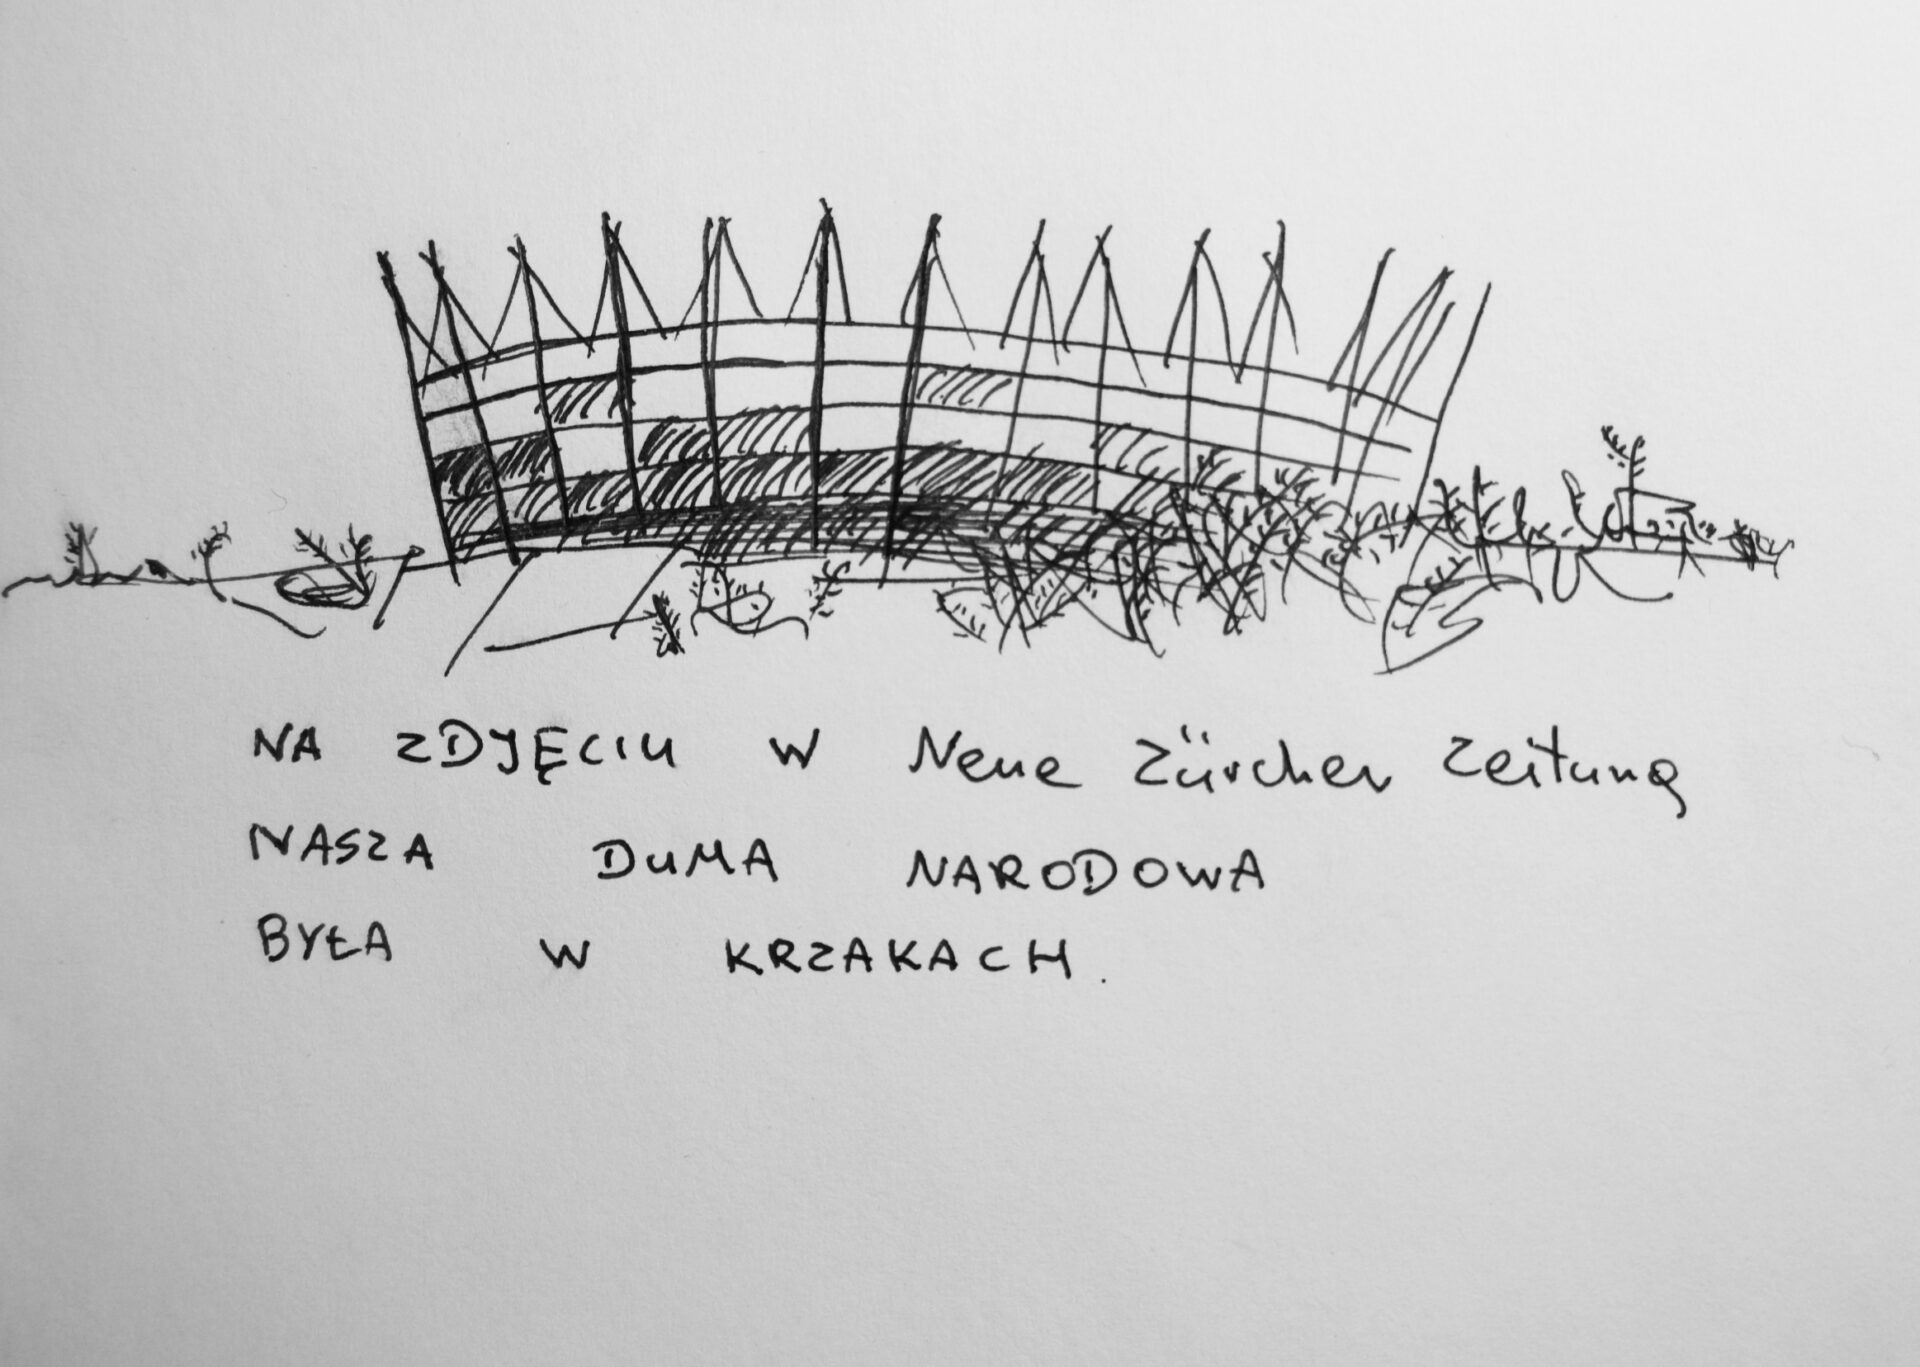 NA ZDJĘCIU W Neue Zürcher Zeitung
NASZA DUMA NARODOWA
BYŁA W KRZAKACH.